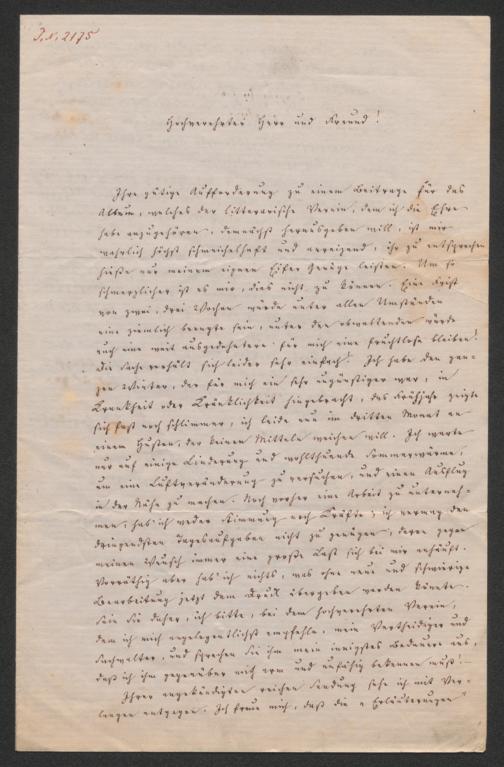 J. N. 2175
Hochverehrter Herr und Freund!
Ihre gütige Aufforderung zu einem Beitrage für das
Album, welches der litterarische Verein, dem ich die Ehre
habe anzugehören, demnächst herausgeben will, ist mir
wahrlich höchst schmeichelhaft und anreizend, ihr zu entsprechen
hieße nur meinem eignen Eifer Genüge leisten. Um so
schmerzlicher ist es mir, dies nicht zu können. Eine Frist
von zwei, drei Wochen würde unter allen Umständen
eine ziemlich beengte sein, unter den obwaltenden würde
auch eine weit ausgedehntere für mich eine fruchtlose bleiben!
Die Sache verhält sich leider sehr einfach! Ich habe den gan-
zen Winter, der für mich ein sehr ungünstiger war, in
Krankheit oder Kränklichkeit hingebracht, das Frühjahr zeigte
sich fast noch schlimmer, ich leide nun im dritten Monat an
einem Husten, der keinen Mitteln weichen will. Ich warte
nur auf einige Linderung und wohlthuende Sommerwärme,
um eine Luftveränderung zu versuchen, und einen Ausflug
in der Nähe zu machen. Noch vorher eine Arbeit zu unterneh-
men, hab' ich weder Stimmung noch Kräfte; ich vermag den
dringendsten Tagesaufgaben nicht zu genügen, deren gegen
meinen Wunsch immer eine große Last sich bei mir anhäuft.
Vorräthig aber hab' ich nichts, was ohne neue und schwierige
Bearbeitung jetzt dem Druck übergeben werden könnte.
Sein Sie daher, ich bitte, bei dem hochverehrten Verein,
dem ich mich angelegentlichst empfehle, mein Vertheidiger und
Sachwalter, und sprechen Sie ihm mein innigstes Bedauern aus,
daß ich ihm gegenüber mich arm und unfähig bekennen muß! –
Ihrer angekündigten reichen Sendung sehe ich mit Ver-
langen entgegen. Ich freue mich, daß die „Erläuterungen"